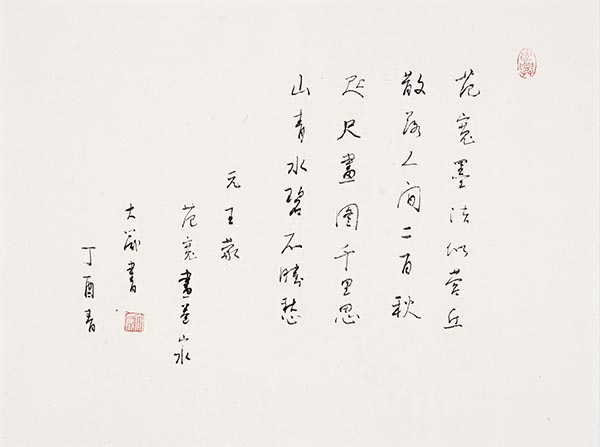 范寬墨法似营丘
散落人间二百秋
咫尺畫圖千里思
山青水碧不勝愁
元王蒙
范寬畫卷山水
大書
丁酉春